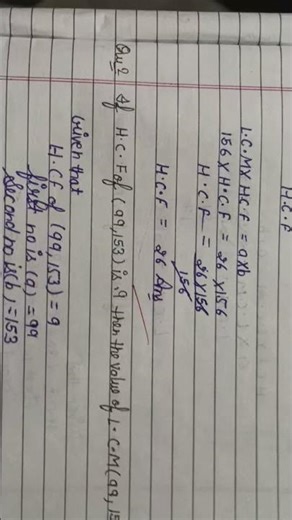 H.C.F
L.C.M X H.C.F = axb
156 X H.C.F = 26 X 156
H.C.F = 26 X 156
156
H.C.F = 26 Ans
Qu.2 If H.C.F of (99,153) is 9 then the value of L.C.M (99, 15
Given that
H.C.F of (99, 153) = 9
first no is (a) = 99
Second no is (b) = 153